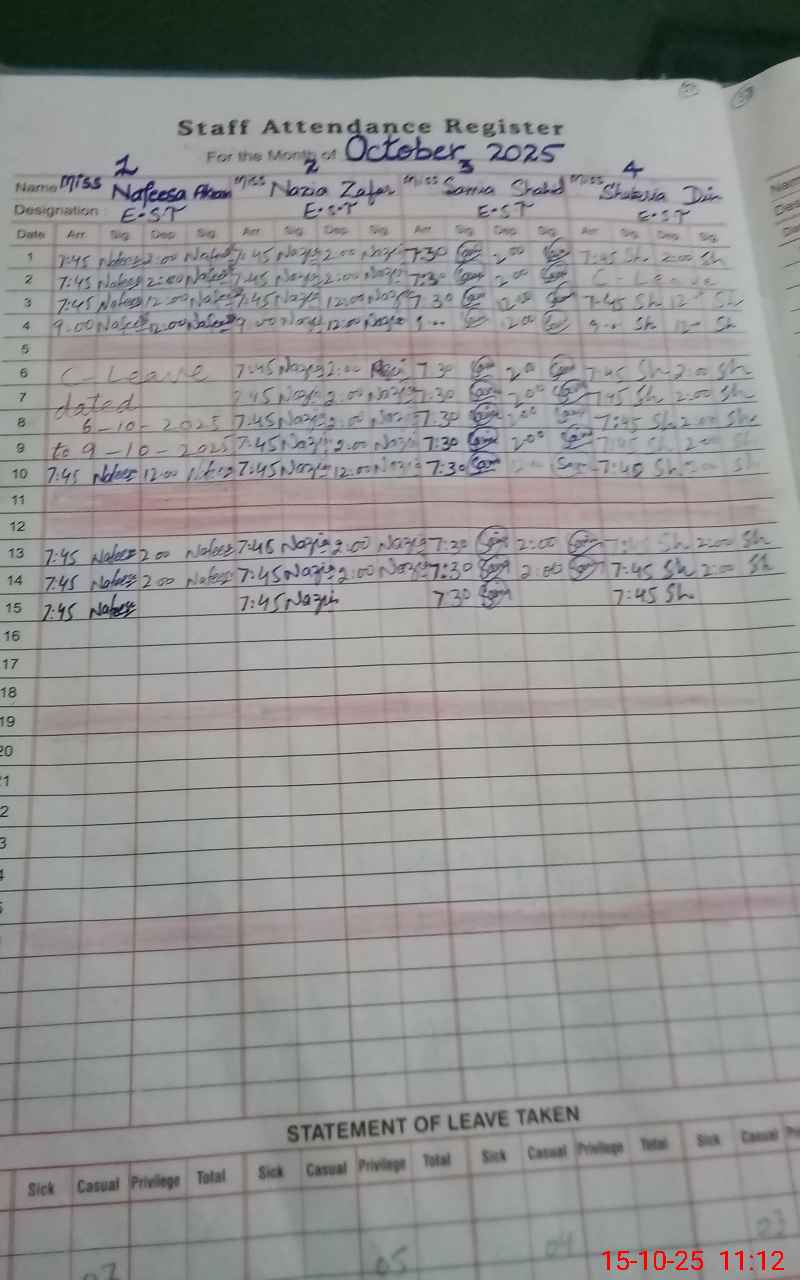 Staff Attendance Register
For the Month of October 2025
1 2 3 4
Name Miss Nafeesa Miss Nazia Zafar Miss Samia Shahid Miss Din
Designation : E.S.T E.S.T E.S.T E.S.T
Date Arr Sig Dep Sig Arr Sig Dep Sig Arr Sig Dep Sig Arr Sig Dep Sig
1 7:45 Nafees 2:00 Nafees 7:45 Nazia 2:00 Nazia 7:30 2:00 7:45 Sh 2:00 Sh
2 7:45 Nafees 2:00 Nafees 7:45 Nazia 2:00 Nazia 7:30 2:00 C-Leave
3 7:45 Nafees 12:00 Nafees 7:45 Nazia 12:00 Nazia 7:30 12:00 7:45 Sh 12 Sh
4 9:00 Nafees 12:00 Nafees 9:00 Nazia 12:00 Nazia 9 12:00 9 Sh 12 Sh
5
6 C-Leave 7:45 Nazia 2:00 7:30 2:00 7:45 Sh 2:00 Sh
7 dated 7:45 Nazia 2:00 Nazia 7:30 2:00 7:45 Sh 2:00 Sh
8 6-10-2025 7:45 Nazia 2:00 Nazia 7:30 2:00 7:45 Sh 2:00 Sh
9 to 9-10-2025 7:45 Nazia 2:00 Nazia 7:30 2:00 7:45 Sh 2:00
10 7:45 Nafees 12:00 Nafees 7:45 Nazia 12:00 Nazia 7:30 7:45 Sh
11
12
13 7:45 Nafees 2:00 Nafees 7:45 Nazia 2:00 Nazia 7:30 2:00 Sh 2:00 Sh
14 7:45 Nafees 2:00 Nafees 7:45 Nazia 2:00 Nazia 7:30 2:00 7:45 Sh 2:00 Sh
15 7:45 Nafees 7:45 Nazia 7:30 7:45 Sh
16
17
18
19
20
STATEMENT OF LEAVE TAKEN
Sick Casual Privilege Total Sick Casual Privilege Total Sick Casual Privilege Total Sick Casual
05 04 03
15-10-25 11:12